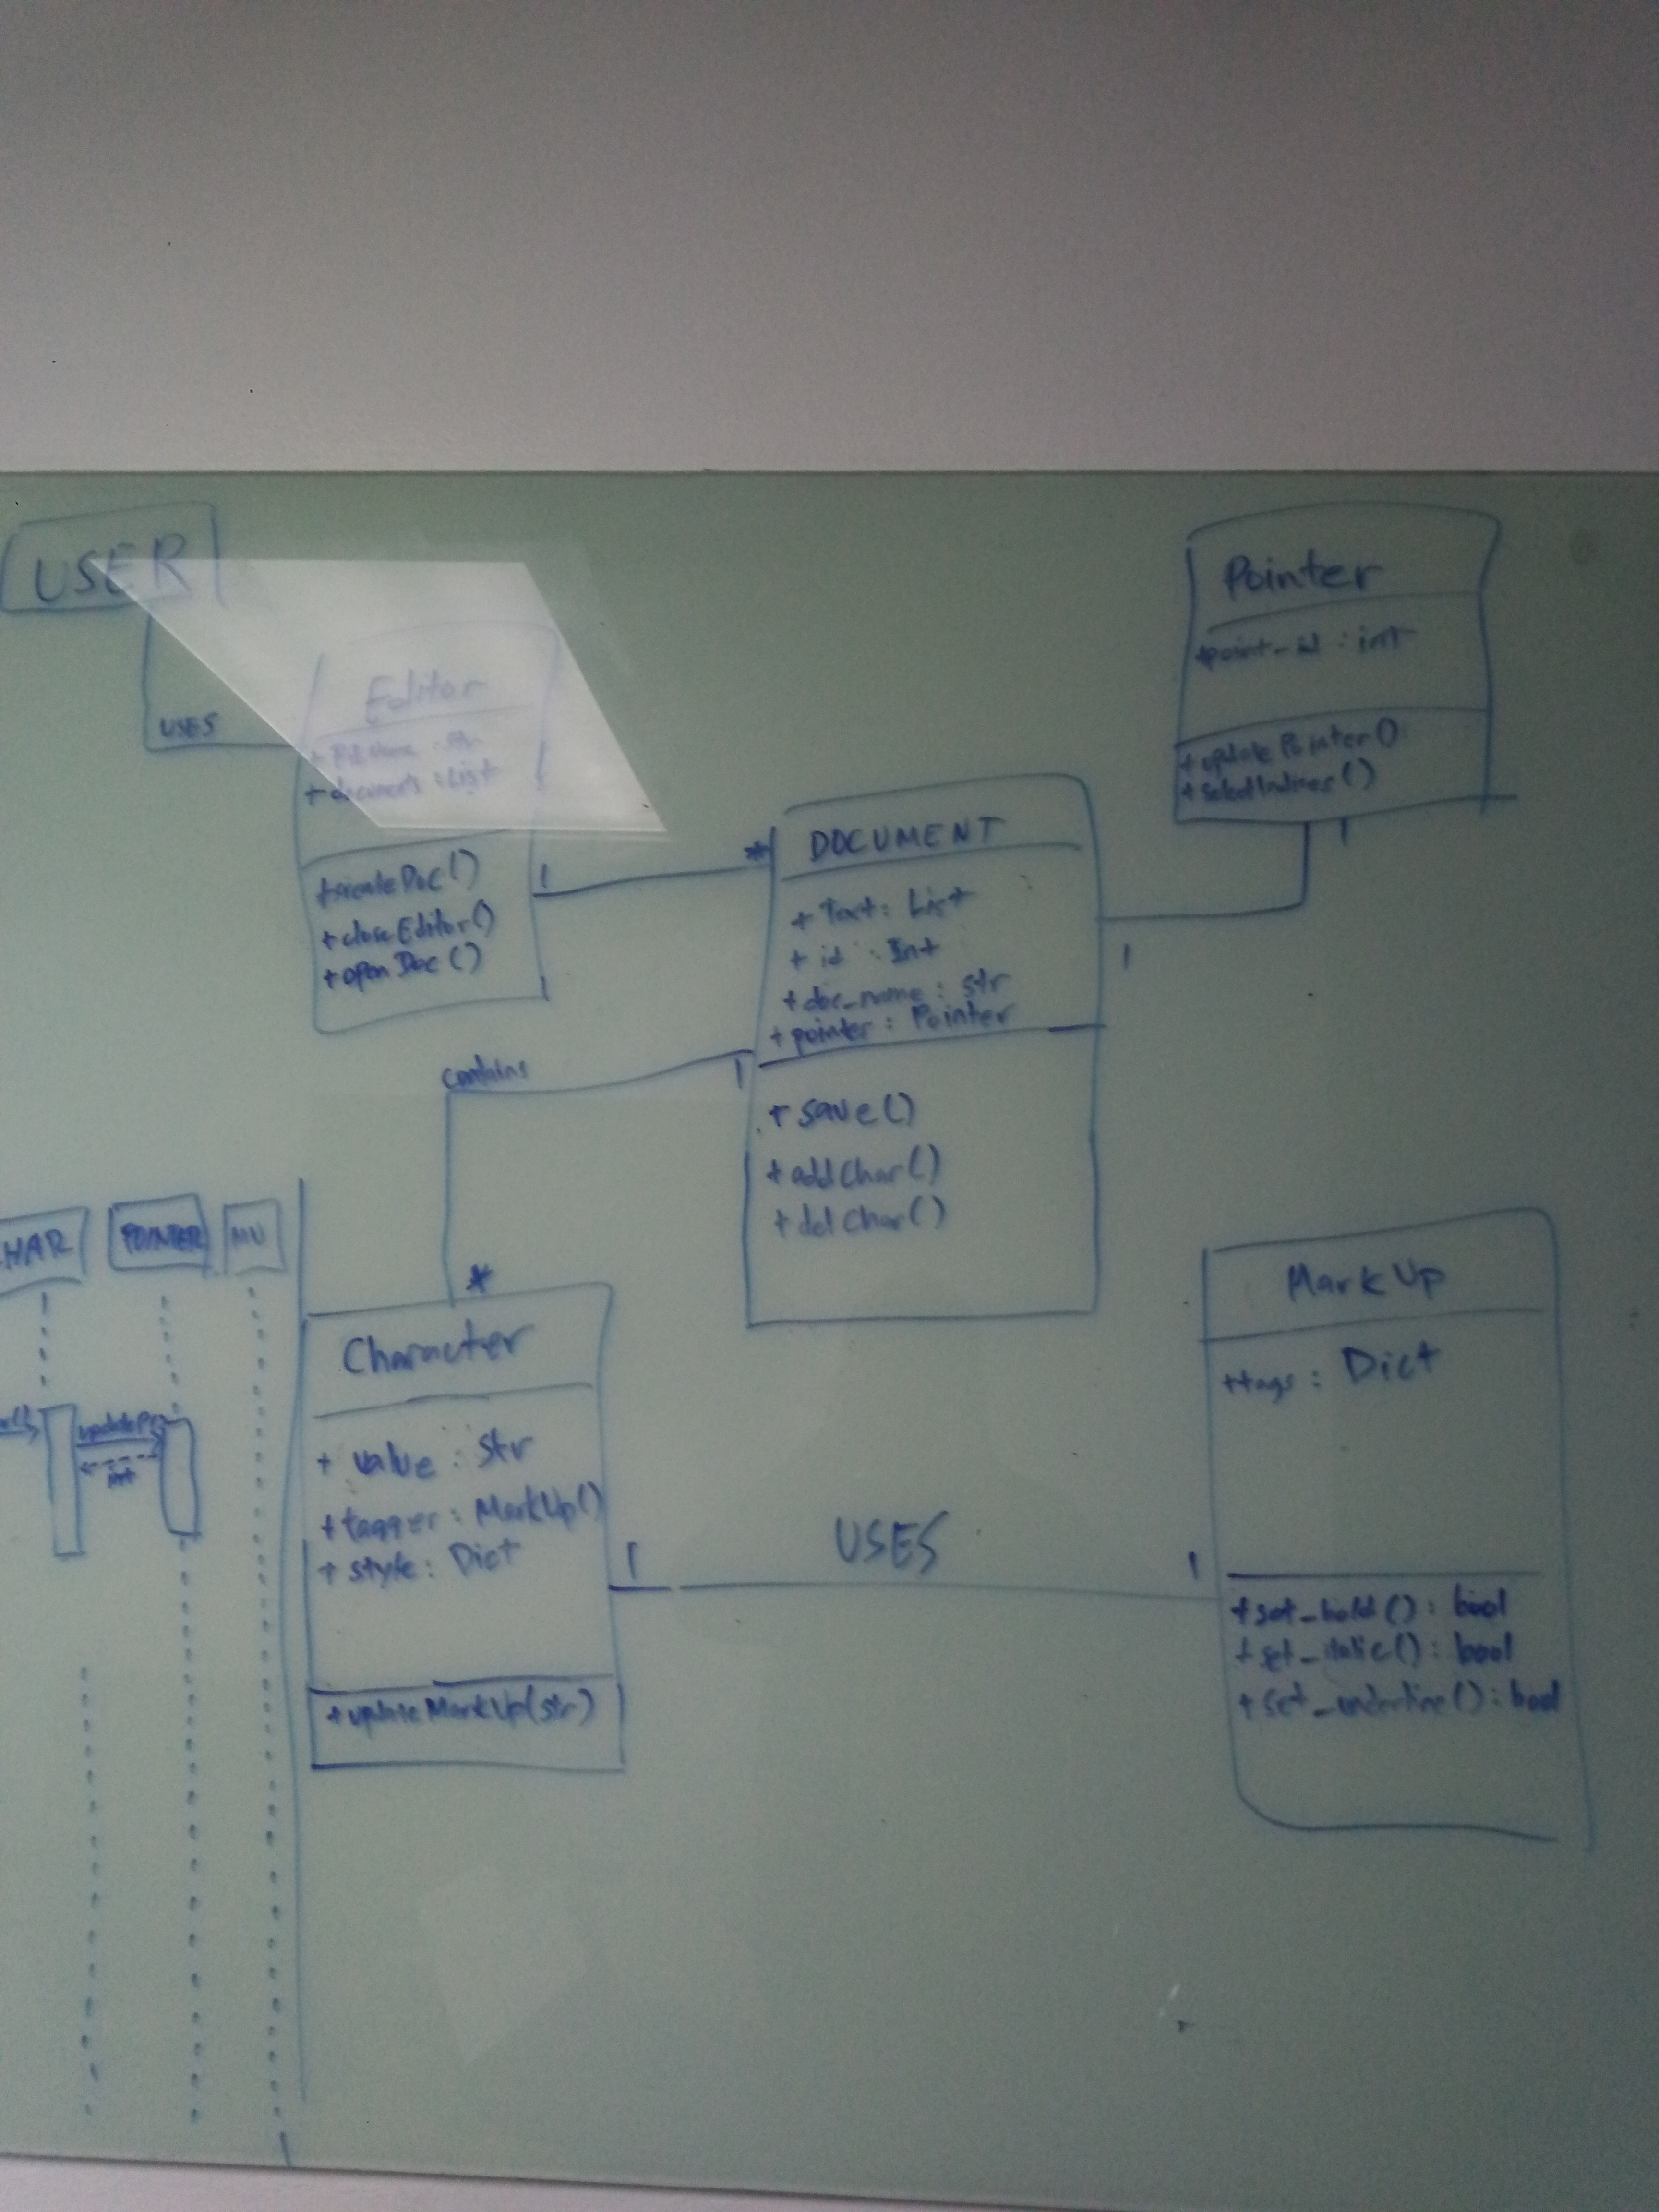 USER
USES
Editor
+ documents : List
+ createDoc()
+ closeEditor()
+ openDoc()
1
*
DOCUMENT
+ Text: List
+ id : Int
+ doc_name : str
+ pointer : Pointer
+ save()
+ addChar()
+ delChar()
Pointer
+point_id : int
+ updatePointer()
+ selectIndices()
1
1
contains
1
*
Character
+ value : str
+ tagger : MarkUp()
+ style : Dict
+ updateMarkUp(str)
1
USES
1
MarkUp
+tags : Dict
+ set_bold() : bool
+ set_italic() : bool
+ set_underline() : bool
HAR
POINTER
MU
int